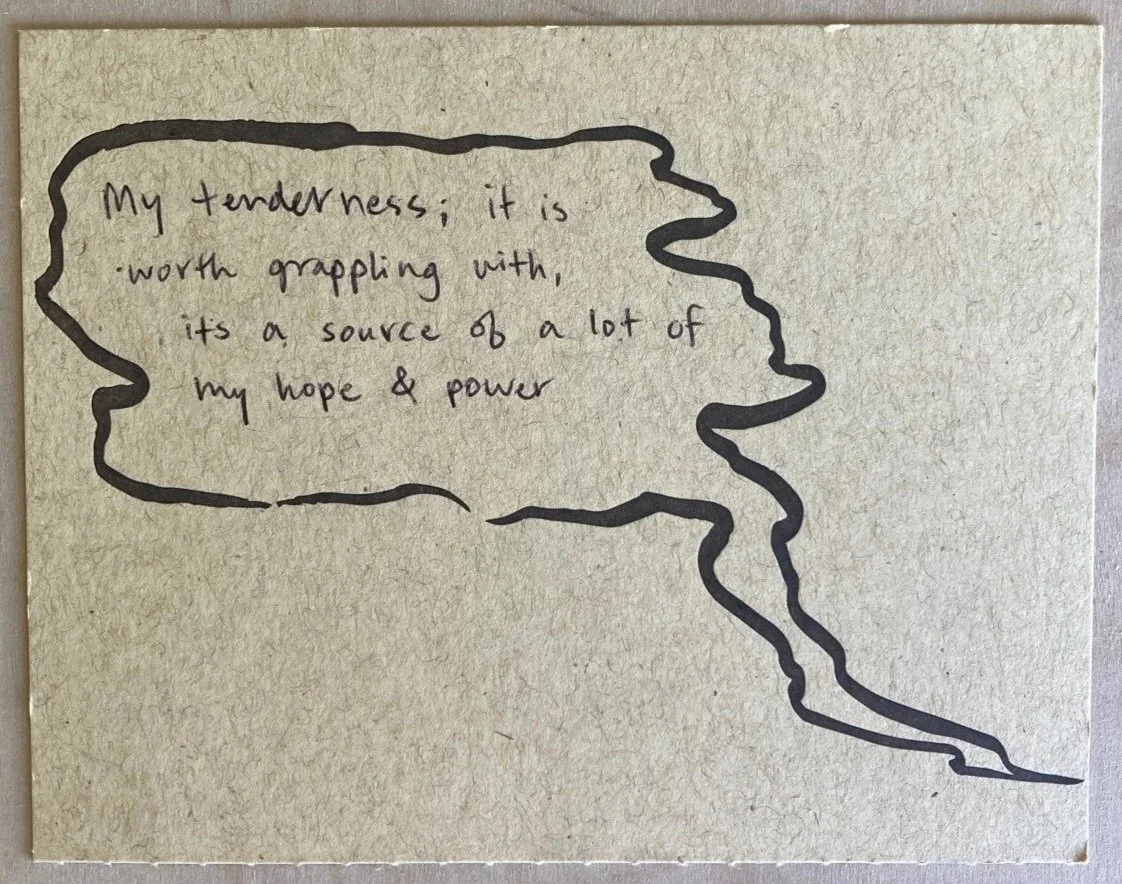 My tenderness; it is
worth grappling with,
it's a source of a lot of
my hope & power